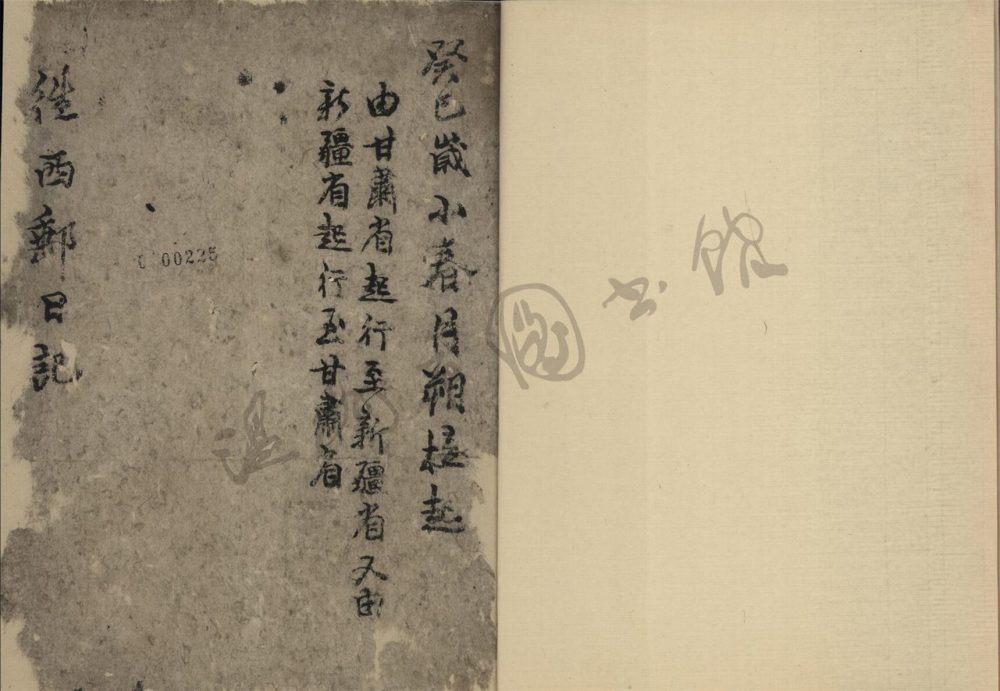 癸巳歲小春月朔起
由甘肅省起行至新疆省又由
新疆省起行至甘肅省
徃西郵日記
00225
图书馆